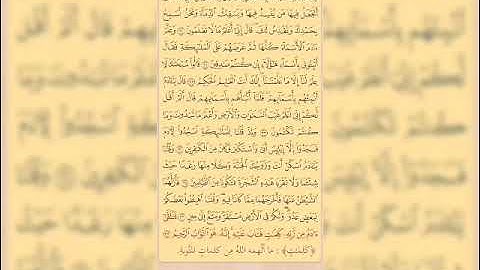 أَتَجْعَلُ فِيهَا مَن يُفْسِدُ فِيهَا وَيَسْفِكُ ٱلدِّمَآءَ وَنَحْنُ نُسَبِّحُ
بِحَمْدِكَ وَنُقَدِّسُ لَكَ قَالَ إِنِّىٓ أَعْلَمُ مَا لَا تَعْلَمُونَ ٣٠ وَعَلَّمَ
ءَادَمَ ٱلْأَسْمَآءَ كُلَّهَا ثُمَّ عَرَضَهُمْ عَلَى ٱلْمَلَٰٓئِكَةِ فَقَالَ
أَنۢبِـُٔونِى بِأَسْمَآءِ هَٰٓؤُلَآءِ إِن كُنتُمْ صَٰدِقِينَ ٣١ قَالُوا۟ سُبْحَٰنَكَ لَا
عِلْمَ لَنَآ إِلَّا مَا عَلَّمْتَنَآ إِنَّكَ أَنتَ ٱلْعَلِيمُ ٱلْحَكِيمُ ٣٢ قَالَ يَٰٓـَٔادَمُ
أَنۢبِئْهُم بِأَسْمَآئِهِمْ فَلَمَّآ أَنۢبَأَهُم بِأَسْمَآئِهِمْ قَالَ أَلَمْ أَقُل
لَّكُمْ إِنِّىٓ أَعْلَمُ غَيْبَ ٱلسَّمَٰوَٰتِ وَٱلْأَرْضِ وَأَعْلَمُ مَا تُبْدُونَ وَمَا
كُنتُمْ تَكْتُمُونَ ٣٣ وَإِذْ قُلْنَا لِلْمَلَٰٓئِكَةِ ٱسْجُدُوا۟ لِـَٔادَمَ
فَسَجَدُوٓا۟ إِلَّآ إِبْلِيسَ أَبَىٰ وَٱسْتَكْبَرَ وَكَانَ مِنَ ٱلْكَٰفِرِينَ ٣٤ وَقُلْنَا
يَٰٓـَٔادَمُ ٱسْكُنْ أَنتَ وَزَوْجُكَ ٱلْجَنَّةَ وَكُلَا مِنْهَا رَغَدًا حَيْثُ
شِئْتُمَا وَلَا تَقْرَبَا هَٰذِهِ ٱلشَّجَرَةَ فَتَكُونَا مِنَ ٱلظَّٰلِمِينَ ٣٥ فَأَزَلَّهُمَا
ٱلشَّيْطَٰنُ عَنْهَا فَأَخْرَجَهُمَا مِمَّا كَانَا فِيهِ وَقُلْنَا ٱهْبِطُوا۟ بَعْضُكُمْ
لِبَعْضٍ عَدُوٌّ وَلَكُمْ فِى ٱلْأَرْضِ مُسْتَقَرٌّ وَمَتَٰعٌ إِلَىٰ حِينٍ ٣٦ فَتَلَقَّىٰٓ
ءَادَمُ مِن رَّبِّهِۦ كَلِمَٰتٍ فَتَابَ عَلَيْهِ إِنَّهُۥ هُوَ ٱلتَّوَّابُ ٱلرَّحِيمُ ٣٧
﴿كَلِمَٰتٍ﴾ : مَا أَلْهَمَهُ اللهُ مِن كَلِمَاتِ التَّوْبَةِ.